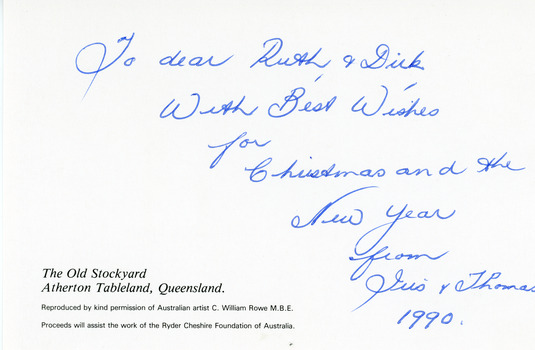 To dear Ruth & Dick
With Best Wishes
for
Christmas and the
New Year
from
Iris & Thomas
1990.
The Old Stockyard
Atherton Tableland, Queensland.
Reproduced by kind permission of Australian artist C. William Rowe M.B.E.
Proceeds will assist the work of the Ryder Cheshire Foundation of Australia.